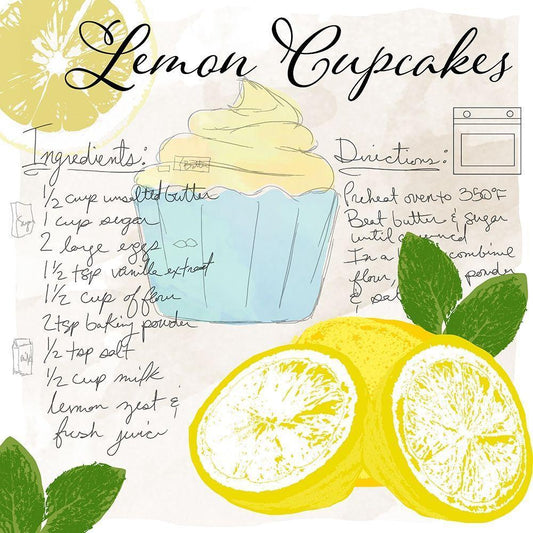 Lemon Cupcakes
Ingredients:
1/2 cup unsalted butter
1 cup sugar
2 large eggs
1 1/2 tsp vanilla extract
1 1/2 cup of flour
2 tsp baking powder
1/2 tsp salt
1/2 cup milk
lemon zest &
fresh juice
Directions:
Preheat oven to 350°F
Beat butter & sugar
until
In a combine
flour powder
&